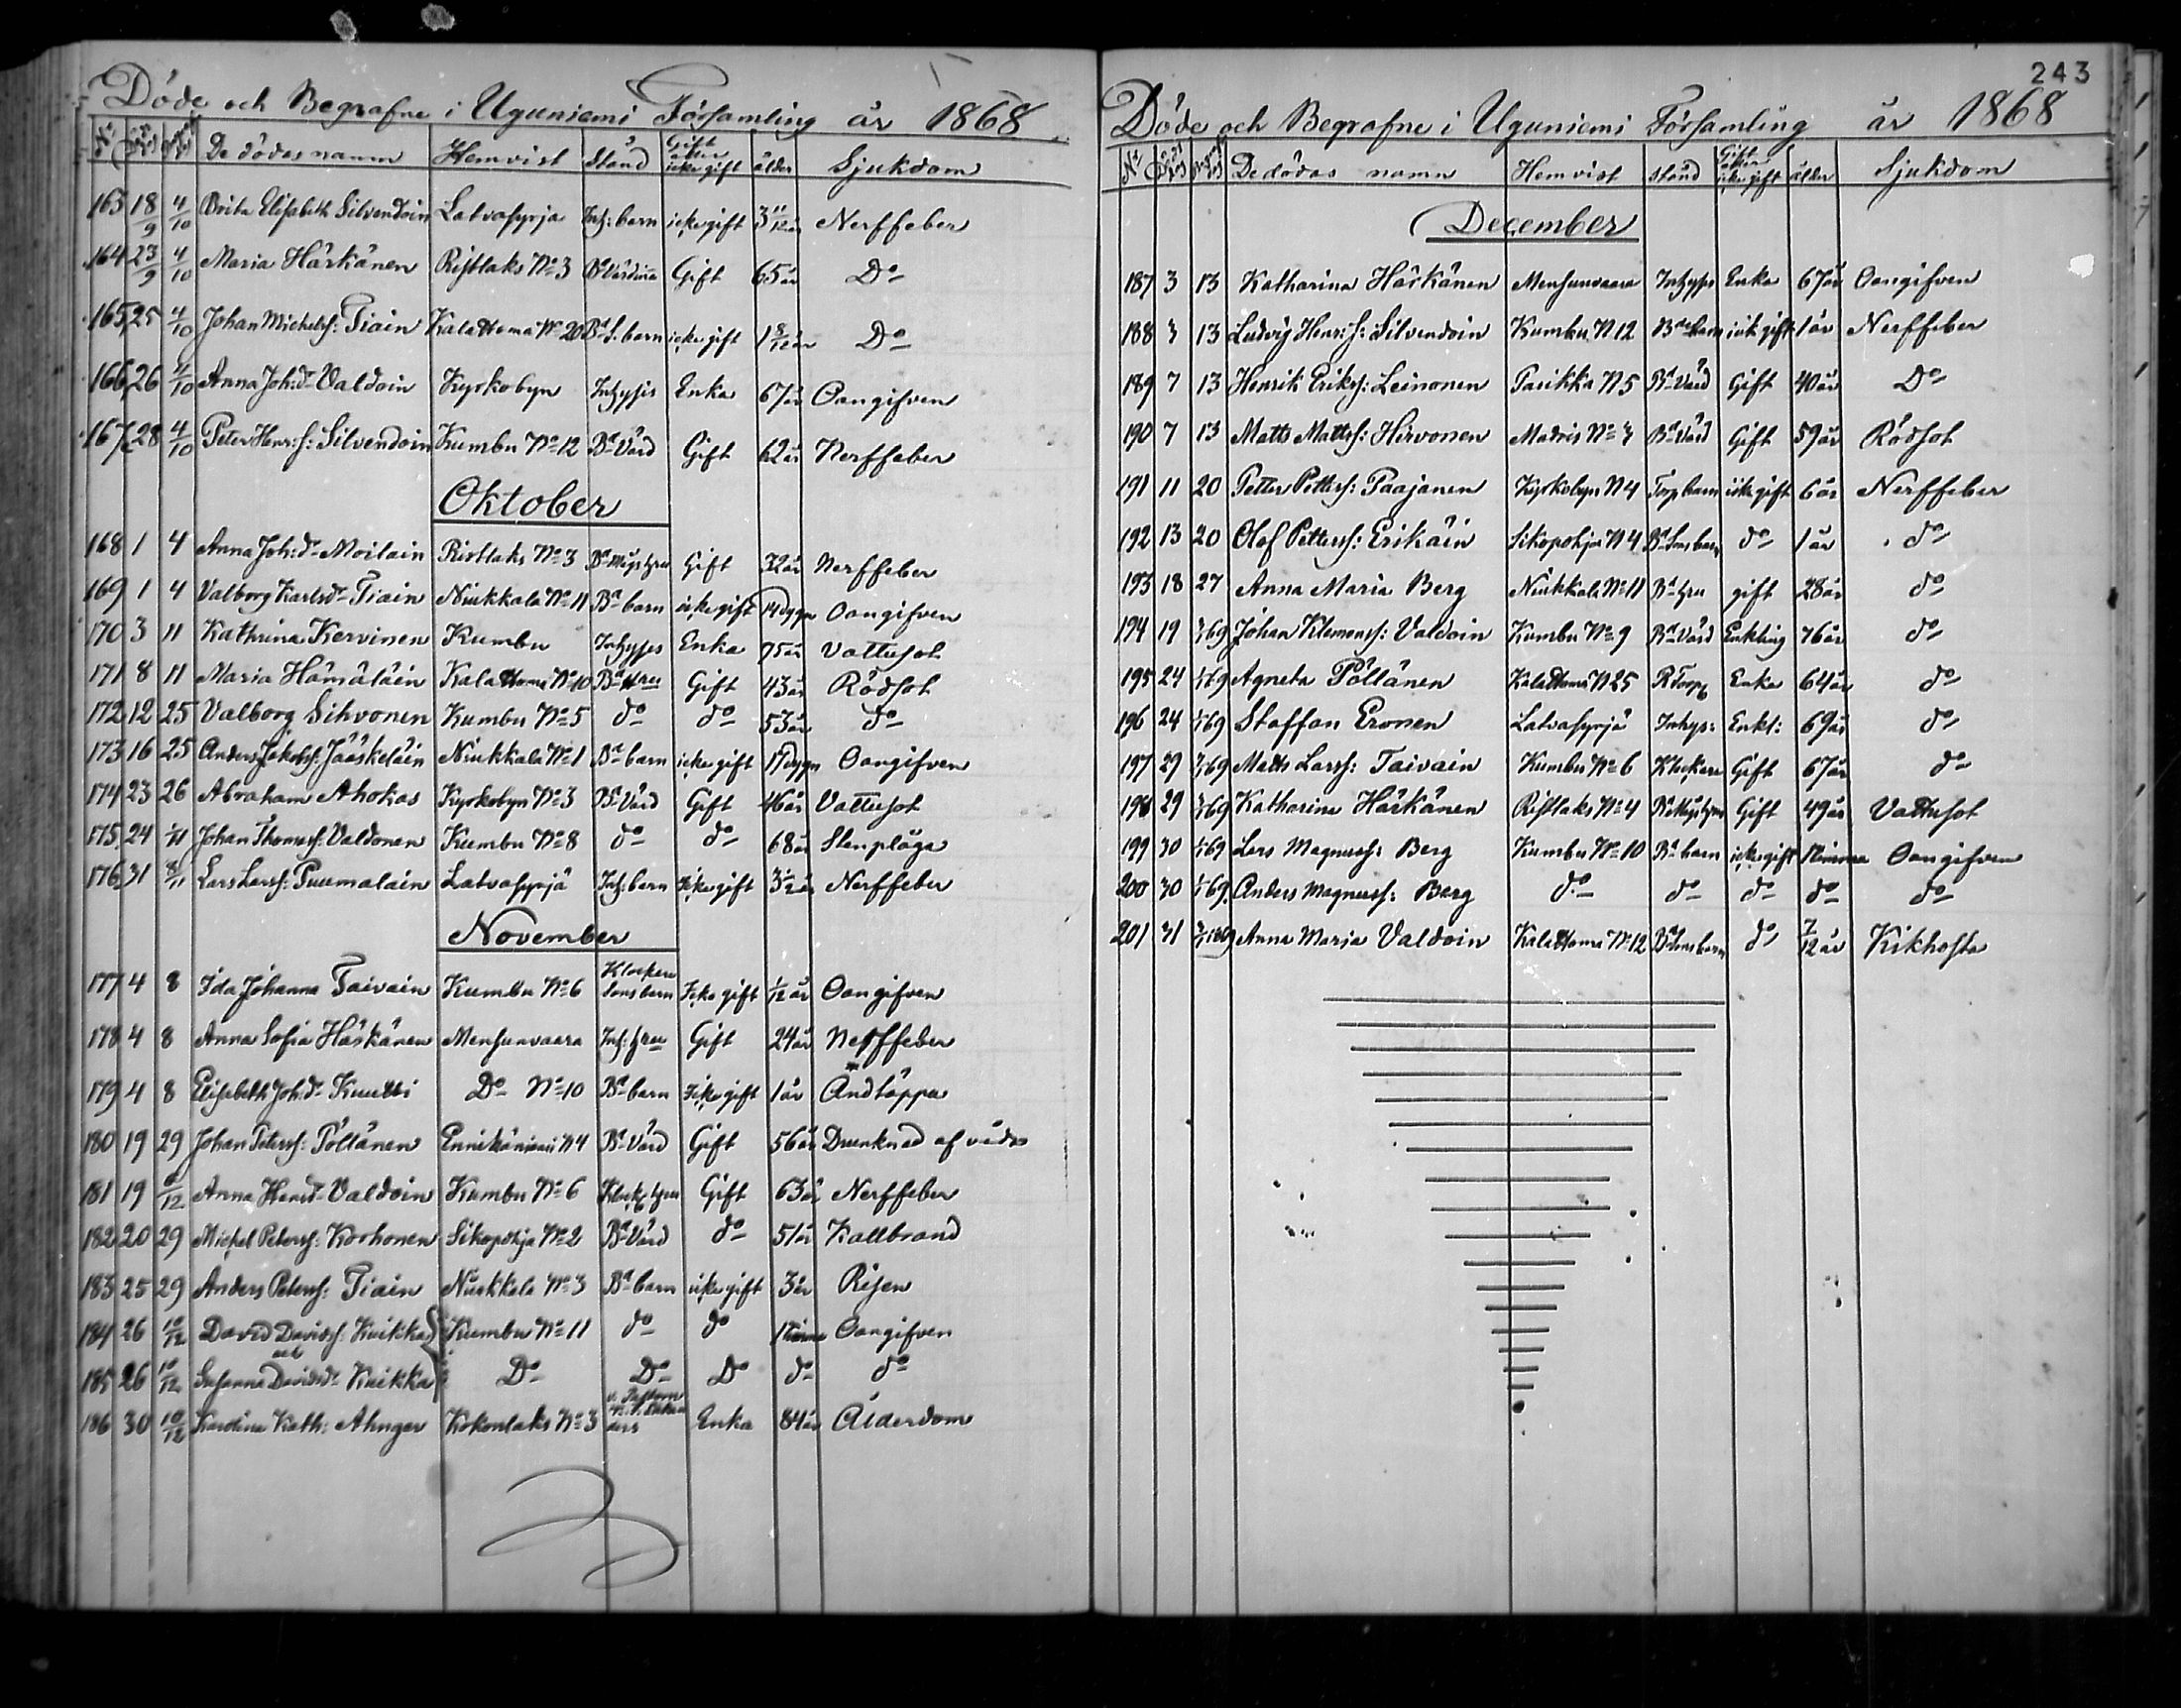 Döde och Begrafne i Uguniemi Församling år 1868
De dödas namn Hemvist Stånd Gift eller icke gift ålder Sjukdom
163 18/9 4/10 Brita Elisabeth Silvendoin Latvasyrja Inh: barn icke gift 3 11/12 år Nerffeber
164 23/9 4/10 Maria Härkänen Ristlaks No 3 Bd Värdinna Gift 65 år Do
165 25 4/10 Johan Michelss: Tiain Kalattoma No 20 Bd S. barn icke gift 1 8/12 år Do
166 26 4/10 Anna Joh:dr Valdoin Kyrkobyn Inhyses Enka 67 år Oangifven
167 28 4/10 Peter Henr:s: Silvendoin Kumbu No 12 Bd Värd Gift 62 år Nerffeber
Oktober
168 1 4 Anna Joh:dr Moilain Ristlaks No 3 Bd Mågs hru Gift 32 år Nerffeber
169 1 4 Valborg Karlsdr Tiain Niukkala No 11 Bd barn icke gift 14 dygn Oangifven
170 3 11 Kathrina Kervinen Kumbu Inhyses Enka 75 år Vattusot
171 8 11 Maria Hämäläin Kalattoma No 10 Bd Hru Gift 43 år Rödsot
172 12 25 Valborg Sihvonen Kumbu No 5 do do 53 år do
173 16 25 Anders Jakobss: Jääskeläin Niukkala No 1 Bd barn icke gift 17 dygn Oangifven
174 23 26 Abraham Ahokas Kyrkobyn No 3 Bd Värd Gift 46 år Vattusot
175 24 1/11 Johan Thomass: Valdonen Kumbu No 8 do do 68 år Stenplåga
176 31 8/11 Lars Larss: Puumalain Latvasyrjä Inh: barn Icke gift 3 1/2 år Nerffeber
November
177 4 8 Ida Johanna Taivain Kumbu No 6 Klockare Sons barn Icke gift 1/12 år Oangifven
178 4 8 Anna Sofia Häskänen Mensunvaara Inh: hru Gift 24 år Nerffeber
179 4 8 Elisabeth Joh:dr Knutti Do No 10 Bd barn Icke gift 1 år Andtäppa
180 19 29 Johan Peterss: Pöllänen Ennikäniemi N 4 Bd Värd Gift 56 år Drunknad af våda
181 19 6/12 Anna Henrdr Valdoin Kumbu No 6 Klock hru Gift 63 år Nerffeber
182 20 29 Michel Peterss: Korhonen Sikopohja No 2 Bd Värd do 51 år Kallbrand
183 25 29 Anders Peterss: Tiain Niukkala No 3 Bd barn icke gift 3 år Risen
184 26 10/12 David Davidss: Kuikka Kumbu No 11 do do 1 timma Oangifven
och
185 26 10/12 Susanna Davidsdr Kuikka Do Do Do do do
186 30 10/12 Karolina Kath: Ahnger Kokonlaks No 3 Enka 84 år Ålderdom
243
Döde och Begrafne i Uguniemi Församling år 1868
De dödas namn Hemvist Stånd Gift eller icke gift ålder Sjukdom
December
187 3 13 Katharina Härkänen Mensunvaara Inhyses Enka 67 år Oangifven
188 3 13 Ludvig Henr:s: Silvendoin Kumbu N 12 Bde barn ick gift 1 år Nerffeber
189 7 13 Henrik Erikss: Leinonen Pasikka N 5 Bd Värd Gift 40 år Do
190 7 13 Matts Mattss: Hirvonen Madris No 3 Bd Värd Gift 59 år Rödsot
191 11 20 Petter Petterss: Paajanen Kyrkobyn N 4 Torp barn icke gift 6 år Nerffeber
192 13 20 Olof Petterss: Erikäin Sikopohja N 4 Bd Sons barn do 1 år do
193 18 27 Anna Maria Berg Niukkala No 11 Bd hru gift 28 år do
194 19 69 Johan Klemenss: Valdoin Kumbu No 9 Bd Värd Enkling 76 år do
195 24 69 Agneta Pöllänen Kalattoma N 25 R Torp Enka 64 år do
196 24 69 Staffan Eronen Latvasyrjä Inhys: Enkl: 69 år do
197 29 69 Matts Larss: Taivain Kumbu No 6 Klockare Gift 67 år do
198 29 69 Katharina Härkänen Ristlaks No 4 Gift 49 år Vattusot
199 30 69 Lars Magnuss: Berg Kumbu No 10 Bd barn icke gift 1 timma Oangifven
200 30 69 Anders Magnuss: Berg do do do do do
201 31 Anna Maria Valdoin Kalattoma No 12 Bd Sons barn do 7/12 år Kikhosta